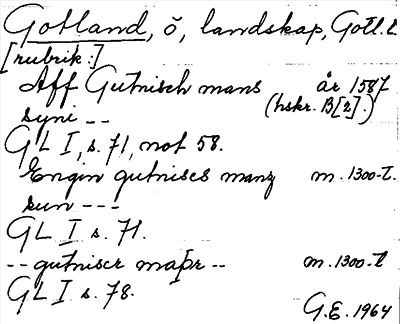 Gotland, ö, landskap, Gotl. l
[rubrik:]
Aff Gutnisch mans år 1587
syni -- (hskr. B[2].)
GL I, s. 71, not 58.
Engin gutniscs manz m. 1300-t.
sun ---
GL I s. 71.
-- gutniscr maþr -- m. 1300-t
GL I s. 78.
G.E. 1964